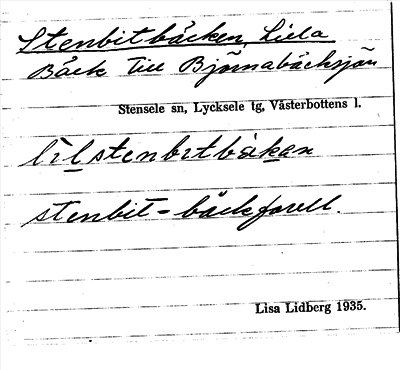 Stenbitbäcken, Lilla
Bäck till Björnabäcksjön
Stensele sn, Lycksele tg, Västerbottens l.
lilstenbitbäkan
stenbit = bäckforell.
Lisa Lidberg 1935.